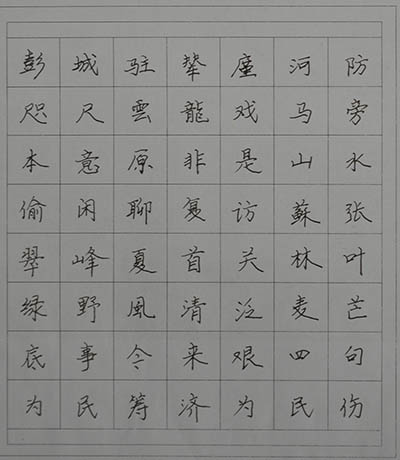 彭城驻辇座河防
咫尺雲龍戏马旁
本意原非是山水
偷闲聊复访蘇张
翠峰夏首关林叶
绿野風清泛麦芒
底事令来艰四句
为民筹济为民伤